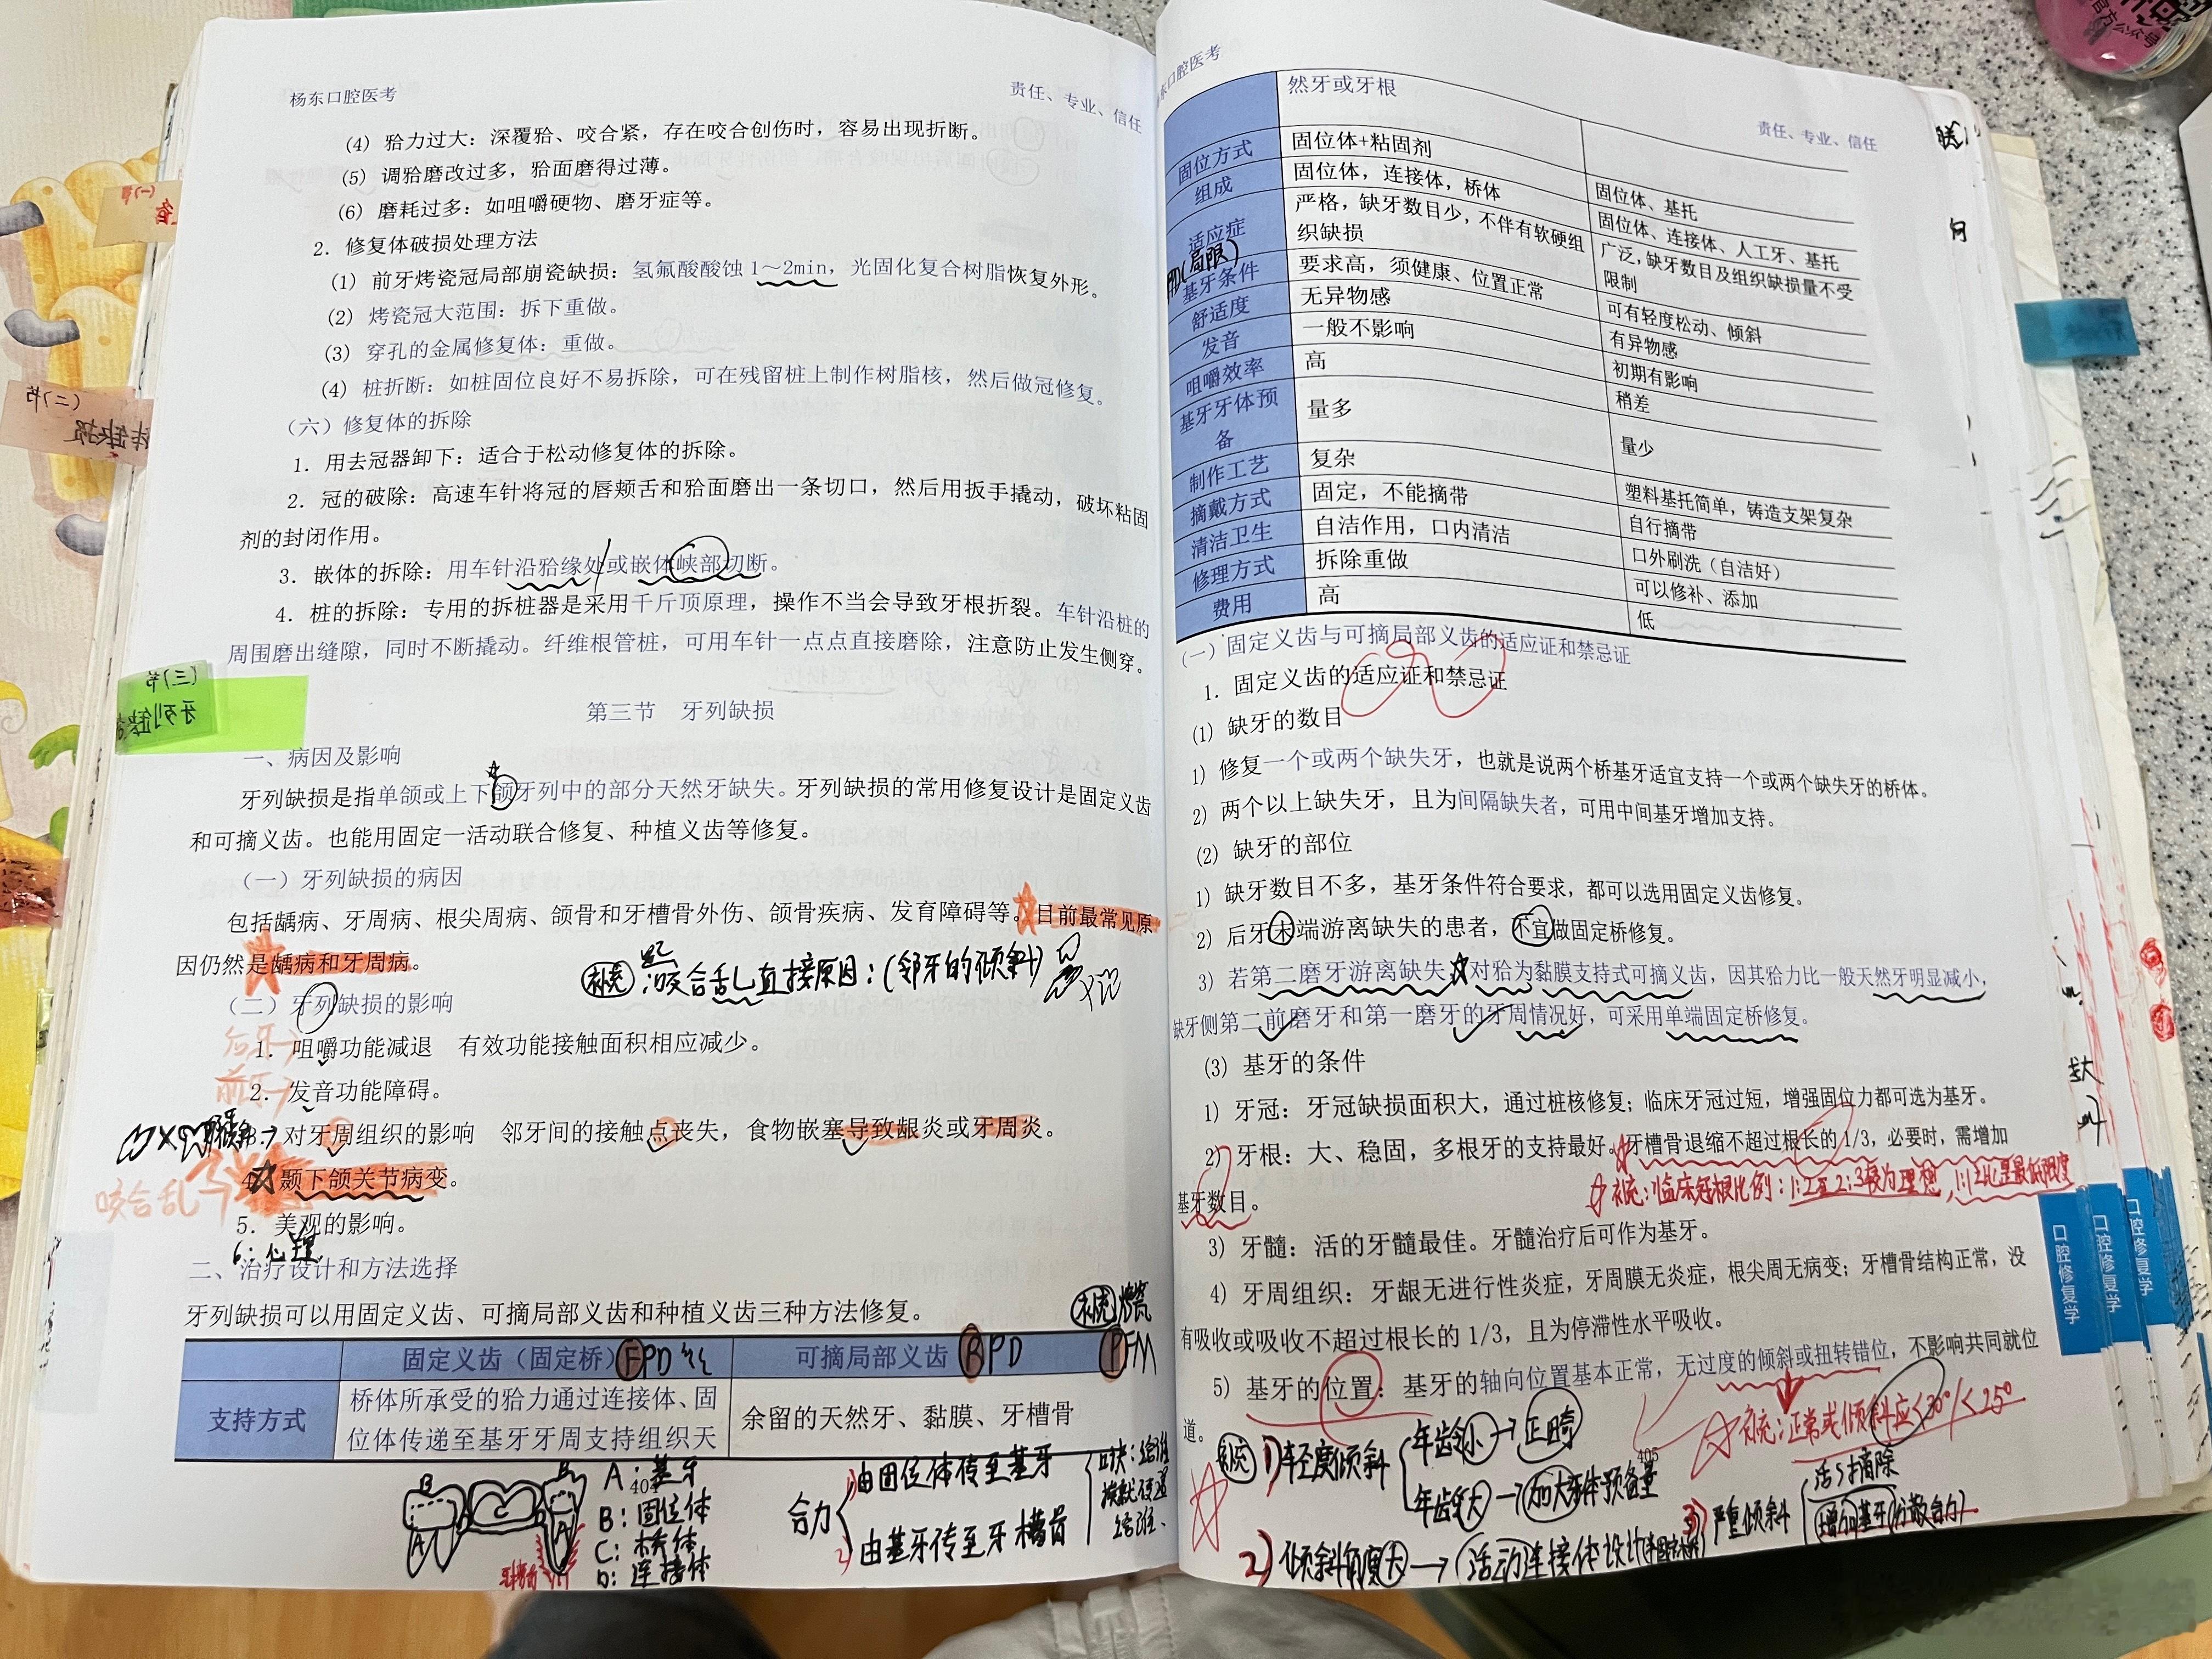 杨东口腔医考
责任、专业、信任
(4) 𬌗力过大：深覆𬌗、咬合紧，存在咬合创伤时，容易出现折断。
(5) 调𬌗磨改过多，𬌗面磨得过薄。
(6) 磨耗过多：如咀嚼硬物、磨牙症等。
2. 修复体破损处理方法
(1) 前牙烤瓷冠局部崩瓷缺损：氢氟酸酸蚀 1～2min，光固化复合树脂恢复外形。
(2) 烤瓷冠大范围：拆下重做。
(3) 穿孔的金属修复体：重做。
(4) 桩折断：如桩固位良好不易拆除，可在残留桩上制作树脂核，然后做冠修复。
（六）修复体的拆除
1. 用去冠器卸下：适合于松动修复体的拆除。
2. 冠的破除：高速车针将冠的唇颊舌和𬌗面磨出一条切口，然后用扳手撬动，破坏粘固
剂的封闭作用。
3. 嵌体的拆除：用车针沿𬌗缘处或嵌体峡部切断。
4. 桩的拆除：专用的拆桩器是采用千斤顶原理，操作不当会导致牙根折裂。车针沿桩的
周围磨出缝隙，同时不断撬动。纤维根管桩，可用车针一点点直接磨除，注意防止发生侧穿。
第三节 牙列缺损
一、病因及影响
牙列缺损是指单颌或上下颌牙列中的部分天然牙缺失。牙列缺损的常用修复设计是固定义齿
和可摘义齿。也能用固定—活动联合修复、种植义齿等修复。
（一）牙列缺损的病因
包括龋病、牙周病、根尖周病、颌骨和牙槽骨外伤、颌骨疾病、发育障碍等。目前最常见原
因仍然是龋病和牙周病。
补充：咬合乱直接原因：(邻牙的倾斜)
（二）牙列缺损的影响
后牙→
1. 咀嚼功能减退 有效功能接触面积相应减少。
前牙→
2. 发音功能障碍。
3. 对牙周组织的影响 邻牙间的接触点丧失，食物嵌塞导致龈炎或牙周炎。
4. 颞下颌关节病变。
咬合乱
5. 美观的影响。
6：心理
二、治疗设计和方法选择
牙列缺损可以用固定义齿、可摘局部义齿和种植义齿三种方法修复。
补充 烤瓷
固定义齿（固定桥）FPD 可摘局部义齿 RPD PFM
支持方式
桥体所承受的𬌗力通过连接体、固
位体传递至基牙牙周支持组织天
余留的天然牙、黏膜、牙槽骨
B C A A
404
A：基牙
B：固位体
C：桥体
D：连接体
合力
1) 由固位体传至基牙
2) 由基牙传至牙槽骨
东口腔医考
责任、专业、信任
然牙或牙根
固位方式 固位体+粘固剂 固位体、基托
组成 固位体，连接体，桥体 固位体、连接体、人工牙、基托
适应症 严格，缺牙数目少，不伴有软硬组
织缺损
广泛，缺牙数目及组织缺损量不受
限制
(局限)
基牙条件 要求高，须健康、位置正常 可有轻度松动、倾斜
舒适度 无异物感 有异物感
发音 一般不影响 初期有影响
咀嚼效率 高 稍差
基牙牙体预
备
量多 量少
制作工艺 复杂 塑料基托简单，铸造支架复杂
摘戴方式 固定，不能摘带 自行摘带
清洁卫生 自洁作用，口内清洁 口外刷洗（自洁好）
修理方式 拆除重做 可以修补、添加
费用 高 低
（一）固定义齿与可摘局部义齿的适应证和禁忌证
1. 固定义齿的适应证和禁忌证
(1) 缺牙的数目
1) 修复一个或两个缺失牙，也就是说两个桥基牙适宜支持一个或两个缺失牙的桥体。
2) 两个以上缺失牙，且为间隔缺失者，可用中间基牙增加支持。
(2) 缺牙的部位
1) 缺牙数目不多，基牙条件符合要求，都可以选用固定义齿修复。
2) 后牙末端游离缺失的患者，不宜做固定桥修复。
3) 若第二磨牙游离缺失，对𬌗为黏膜支持式可摘义齿，因其𬌗力比一般天然牙明显减小，
缺牙侧第二前磨牙和第一磨牙的牙周情况好，可采用单端固定桥修复。
(3) 基牙的条件
1) 牙冠：牙冠缺损面积大，通过桩核修复；临床牙冠过短，增强固位力都可选为基牙。
2) 牙根：大、稳固，多根牙的支持最好。牙槽骨退缩不超过根长的 1/3，必要时，需增加
基牙数目。
补充：临床冠根比例：1:2至2:3最为理想，1:1比是最低限度
3) 牙髓：活的牙髓最佳。牙髓治疗后可作为基牙。
4) 牙周组织：牙龈无进行性炎症，牙周膜无炎症，根尖周无病变；牙槽骨结构正常，没
有吸收或吸收不超过根长的 1/3，且为停滞性水平吸收。
5) 基牙的位置：基牙的轴向位置基本正常，无过度的倾斜或扭转错位，不影响共同就位
道。
补充：正常或倾斜应<30°/<25°
405
补充 1) 轻度倾斜
年龄小→正畸
年龄大→加大牙体预备量
2) 倾斜角度大→活动连接体设计
3) 严重倾斜
增加基牙(分散合力)
口腔修复学
口腔修复学
口腔修复学
(三)书
牙列缺
(二)书
官方公众号